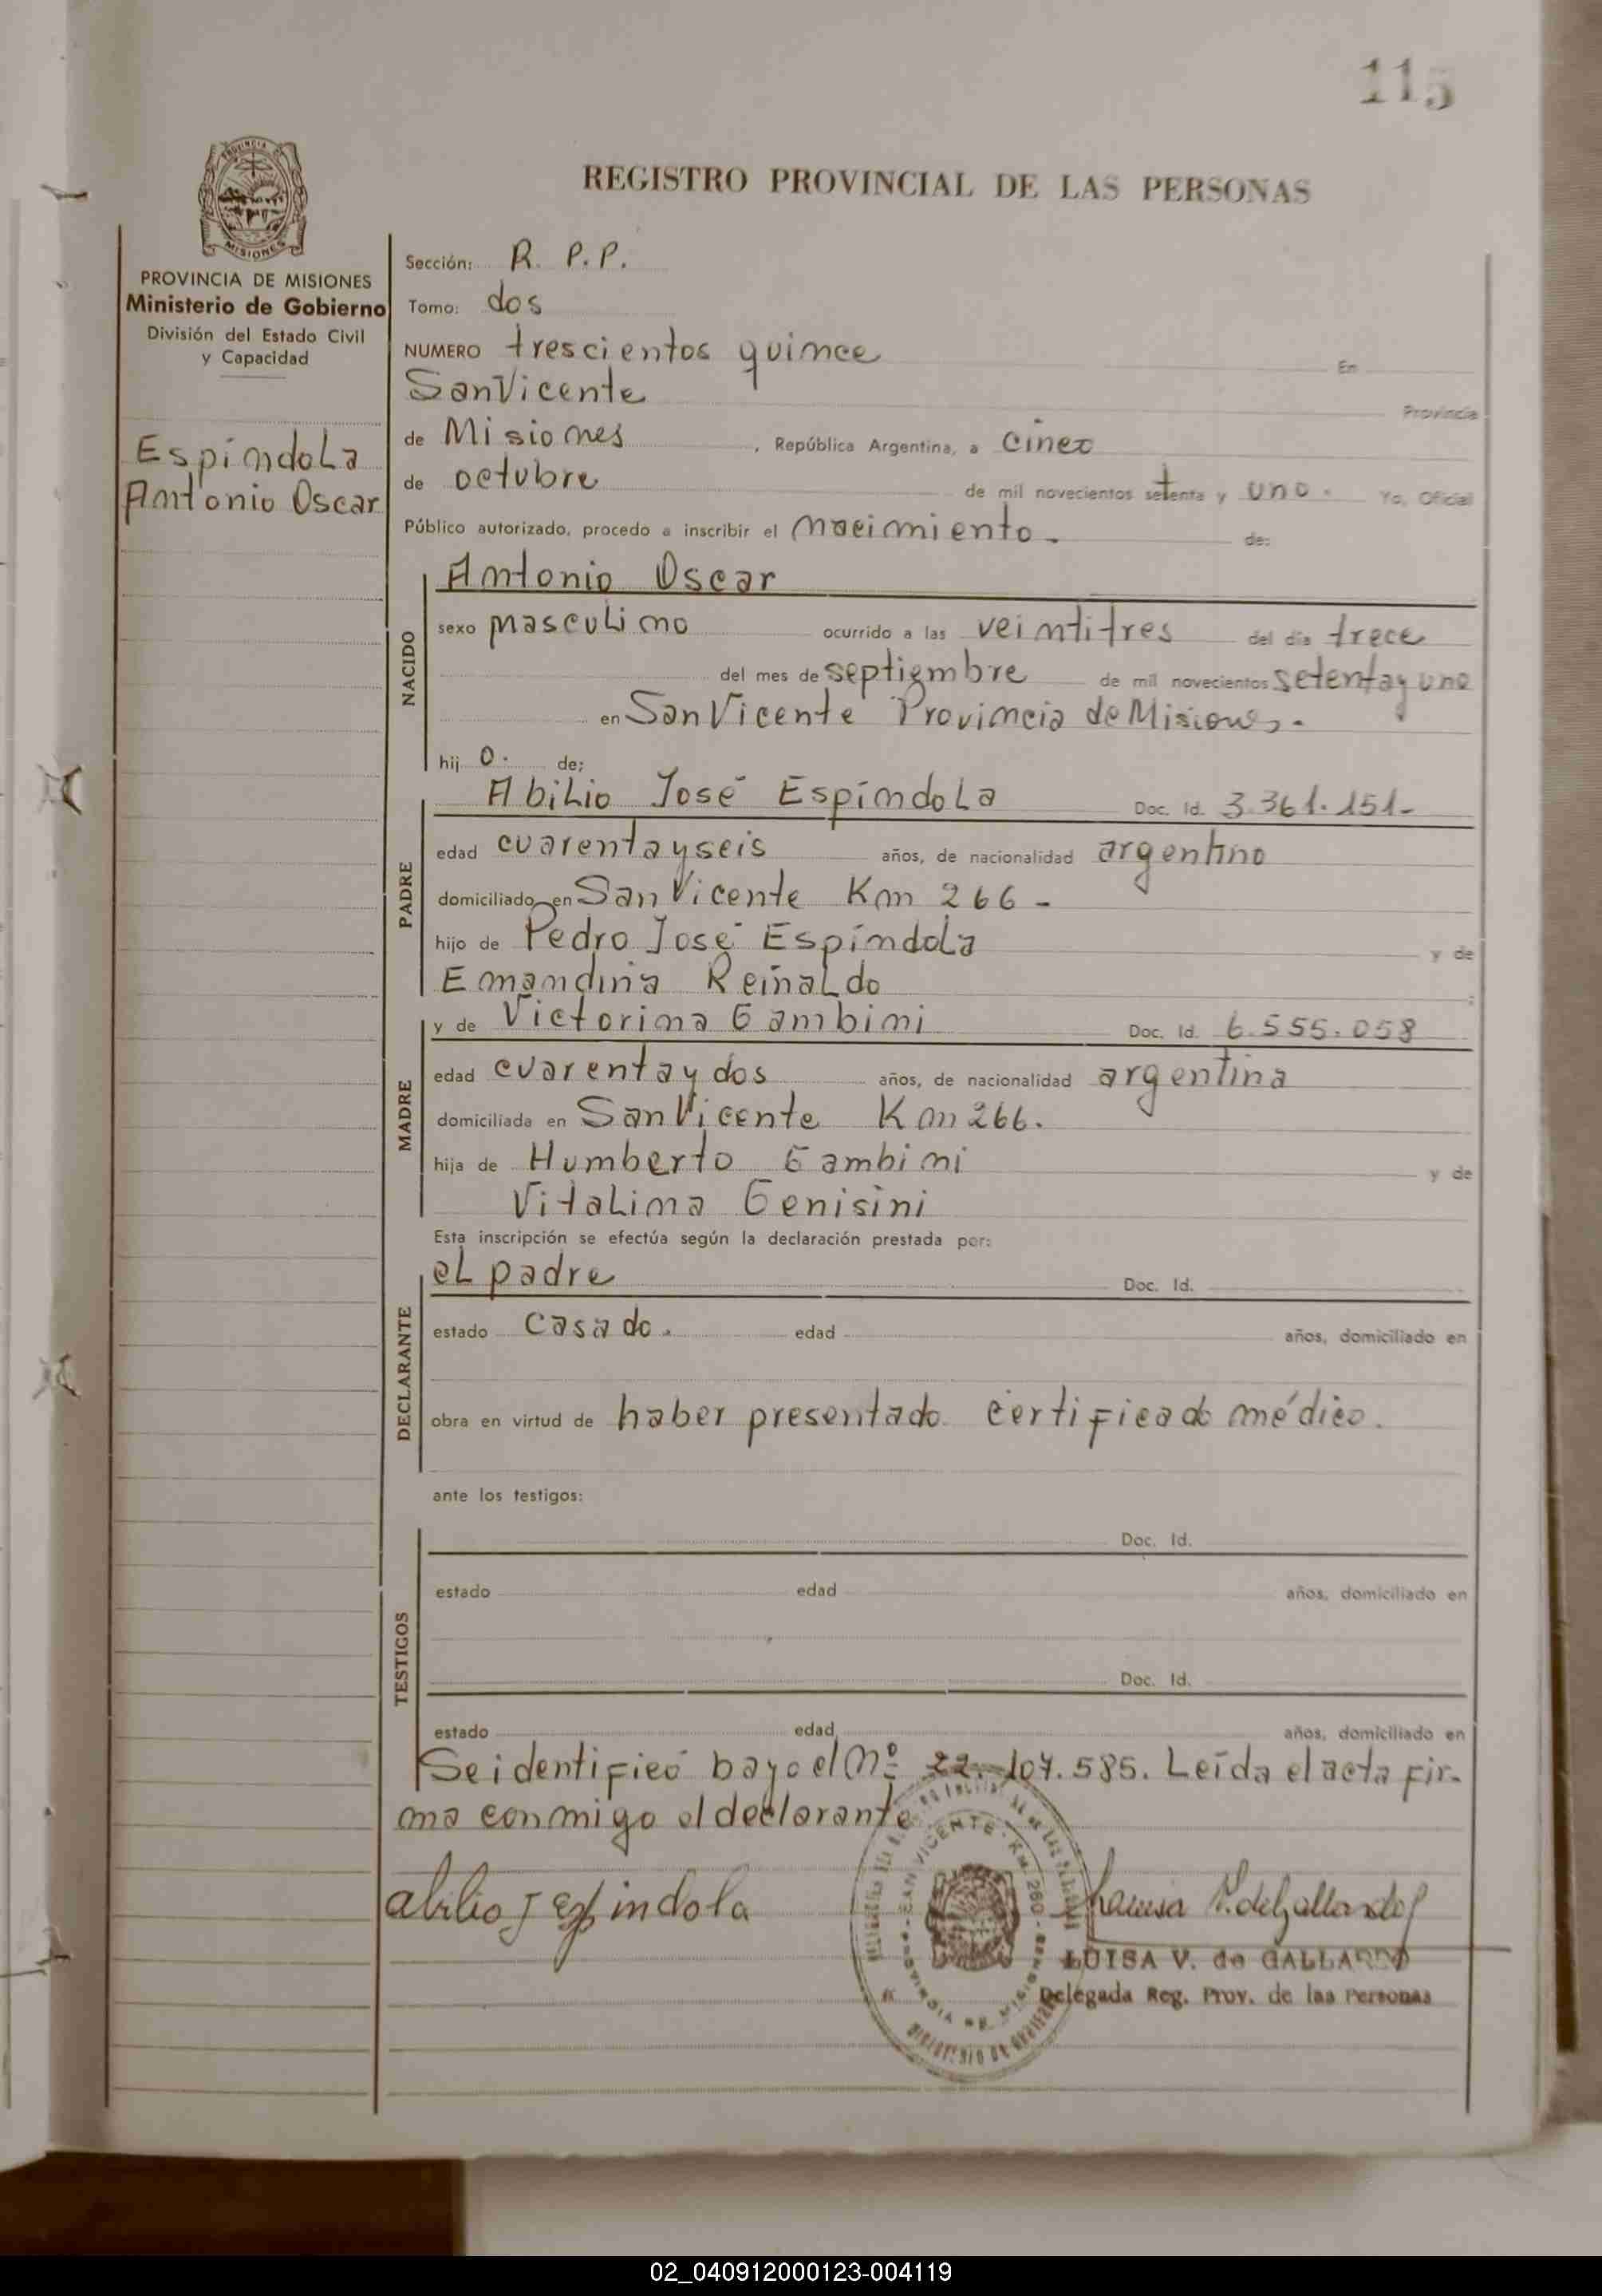 115
PROVINCIA DE
MISIONES
REGISTRO PROVINCIAL DE LAS PERSONAS
PROVINCIA DE MISIONES
Ministerio de Gobierno
División del Estado Civil
y Capacidad
Espíndola
Antonio Oscar
Sección: R. P. P.
Tomo: dos
NUMERO trescientos quince En
San Vicente Provincia
de Misiones, República Argentina, a cinco
de octubre de mil novecientos setenta y uno. Yo, Oficial
Público autorizado, procedo a inscribir el nacimiento. de:
NACIDO
Antonio Oscar
sexo masculino ocurrido a las veintitres del día trece
del mes de septiembre de mil novecientos setenta y uno
en San Vicente Provincia de Misiones.
hij o. de:
PADRE
Abilio José Espíndola Doc. Id. 3.361.151-
edad cuarenta y seis años, de nacionalidad argentino
domiciliado en San Vicente Km 266 -
hijo de Pedro José Espíndola y de
Emandina Reinaldo ;
MADRE
y de Victorina Gambini Doc. Id. 6.555.058
edad cuarenta y dos años, de nacionalidad argentina
domiciliada en San Vicente Km 266.
hija de Humberto Gambini y de
Vitalina Genisini
Esta inscripción se efectúa según la declaración prestada por:
DECLARANTE
el padre Doc. Id.
estado casado. edad años, domiciliado en
obra en virtud de haber presentado certificado médico.
ante los testigos:
TESTIGOS
Doc. Id.
estado edad años, domiciliado en
Doc. Id.
estado edad años, domiciliado en
Se identificó bajo el Nº 22.107.585. Leída el acta fir-
ma conmigo el declarante
abilio J Espindola
Luisa V. de Gallardo
SAN VICENTE - KM 260 - PROVINCIA DE MISIONES
MINISTERIO DE GOBIERNO
LUISA V. de GALLARDO
Delegada Reg. Prov. de las Personas
02_040912000123-004119